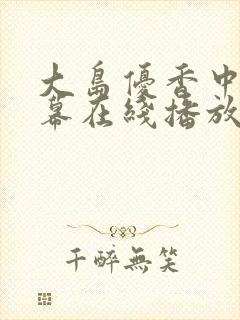 大島優香中
幕在綫播放
千醉無笑